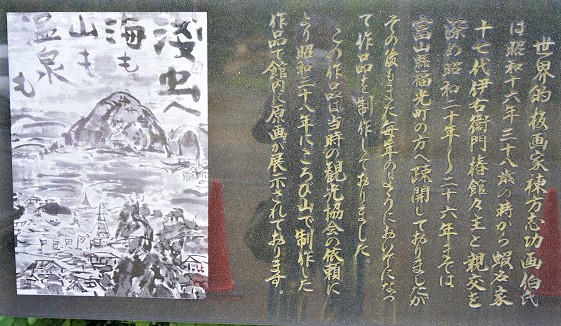 世界的板画家棟方志功画伯氏
は昭和十六年三十八歳の時から蝦名家
十七代伊右衛門椿館々主と親交を
深め昭和二十年〜二十六年までは
富山縣福光町の方へ疎開しておりましたが
その後もまた毎年のようにおいでになっ
て作品を制作しておりました
この作品は当時の観光協会の依頼に
より昭和三十八年にころび山で制作した
作品で館内に原画が展示されております。
淺虫へ
海も
山も
温泉も